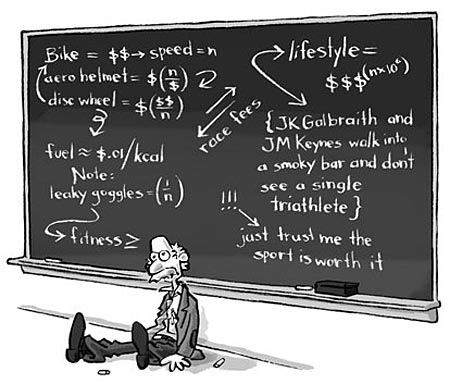 Bike = $$→ speed=n
aero helmet = $(n/$)
disc wheel = $($$/n)
fuel ≈ $.01/kcal
Note:
leaky goggles=(1/n)
fitness ≥
race fees
lifestyle=
$$$(n×10⁶)
{JK Galbraith and
JM Keynes walk into
a smoky bar and don't
see a single
triathlete}
!!!
just trust me the
sport is worth it